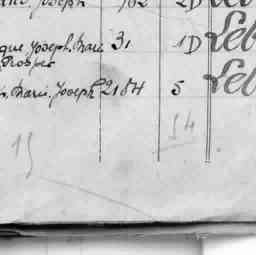 Joseph 782 2D Leb
que Joseph, Marie 31 1D Leb
Prosper
Marie, Joseph 2184 5 Leb
54
15